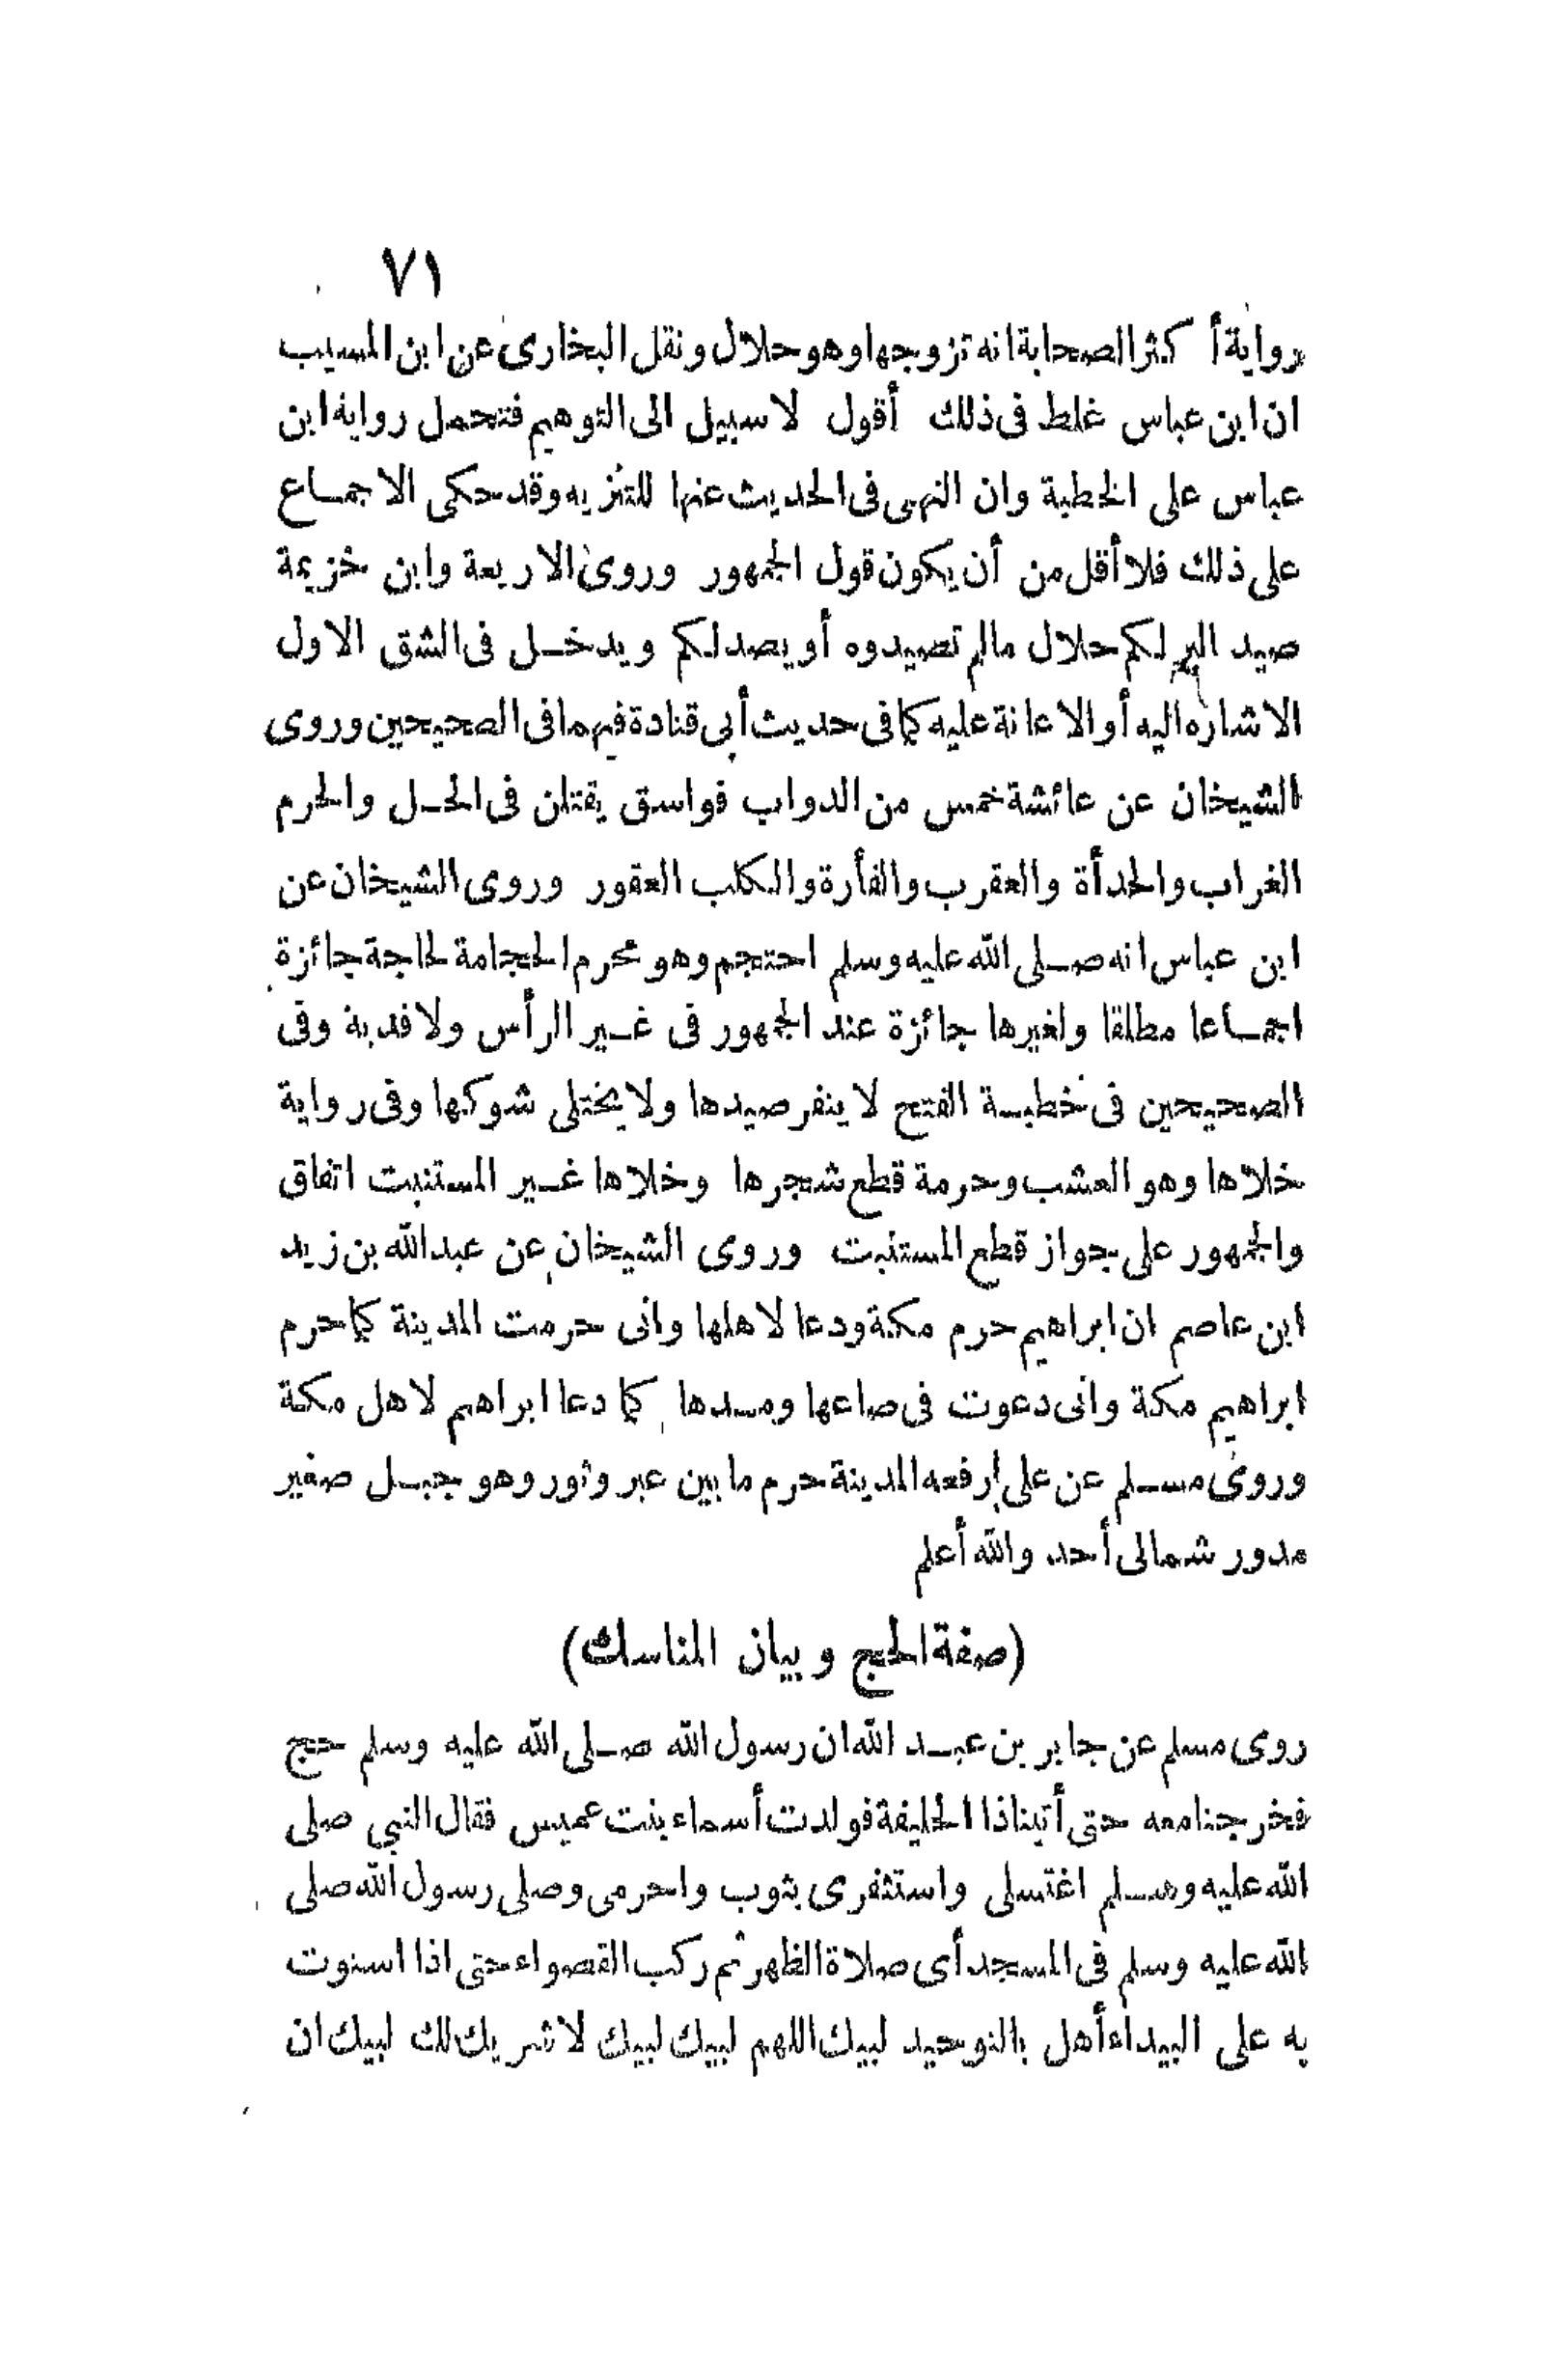 ٧١
رواية أكثر الصحابة انه تزوجها وهو حلال ونقل البخارى عن ابن المسيب
ان ابن عباس غلط فى ذلك أقول لا سبيل الى التوهيم فتحمل رواية ابن
عباس على الخطبة وان النهى فى الحديث عنها للتنزيه وقد حكى الاجماع
على ذلك فلا أقل من أن يكون قول الجمهور وروى الاربعة وابن خزيمة
صيد البر لكم حلال مالم تصيدوه أو يصد لكم ويدخل فى الشق الاول
الاشاره اليه أو الاعانة عليه كما فى حديث أبى قتادة فيهما فى الصحيحين وروى
الشيخان عن عائشة خمس من الدواب فواسق يقتلن فى الحل والحرم
الغراب والحدأة والعقرب والفأرة والكلب العقور وروى الشيخان عن
ابن عباس انه صلى الله عليه وسلم احتجم وهو محرم الحجامة لحاجة جائزة
اجماعا مطلقا ولغيرها جائزة عند الجمهور فى غير الرأس ولا فدية وفى
الصحيحين فى خطبة الفتح لا ينفر صيدها ولا يختلى شوكها وفى رواية
خلاها وهو العشب وحرمة قطع شجرها وخلاها غير المستنبت اتفاق
والجمهور على جواز قطع المستنبت وروى الشيخان عن عبد الله بن زيد
ابن عاصم ان ابراهيم حرم مكة ودعا لاهلها وانى حرمت المدينة كما حرم
ابراهيم مكة وانى دعوت فى صاعها ومدها كما دعا ابراهيم لاهل مكة
وروى مسلم عن على رفعه المدينة حرم ما بين عير وثور وهو جبل صغير
مدور شمالى أحد والله أعلم
(صفة الحج وبيان المناسك)
روى مسلم عن جابر بن عبد الله ان رسول الله صلى الله عليه وسلم حج
فخرجنا معه حتى أتينا ذا الحليفة فولدت أسماء بنت عميس فقال النبي صلى
الله عليه وسلم اغتسلى واستثفرى بثوب واحرمى وصلى رسول الله صلى
الله عليه وسلم فى المسجد أى صلاة الظهر ثم ركب القصواء حتى اذا استوت
به على البيداء أهل بالتوحيد لبيك اللهم لبيك لبيك لا شريك لك لبيك ان